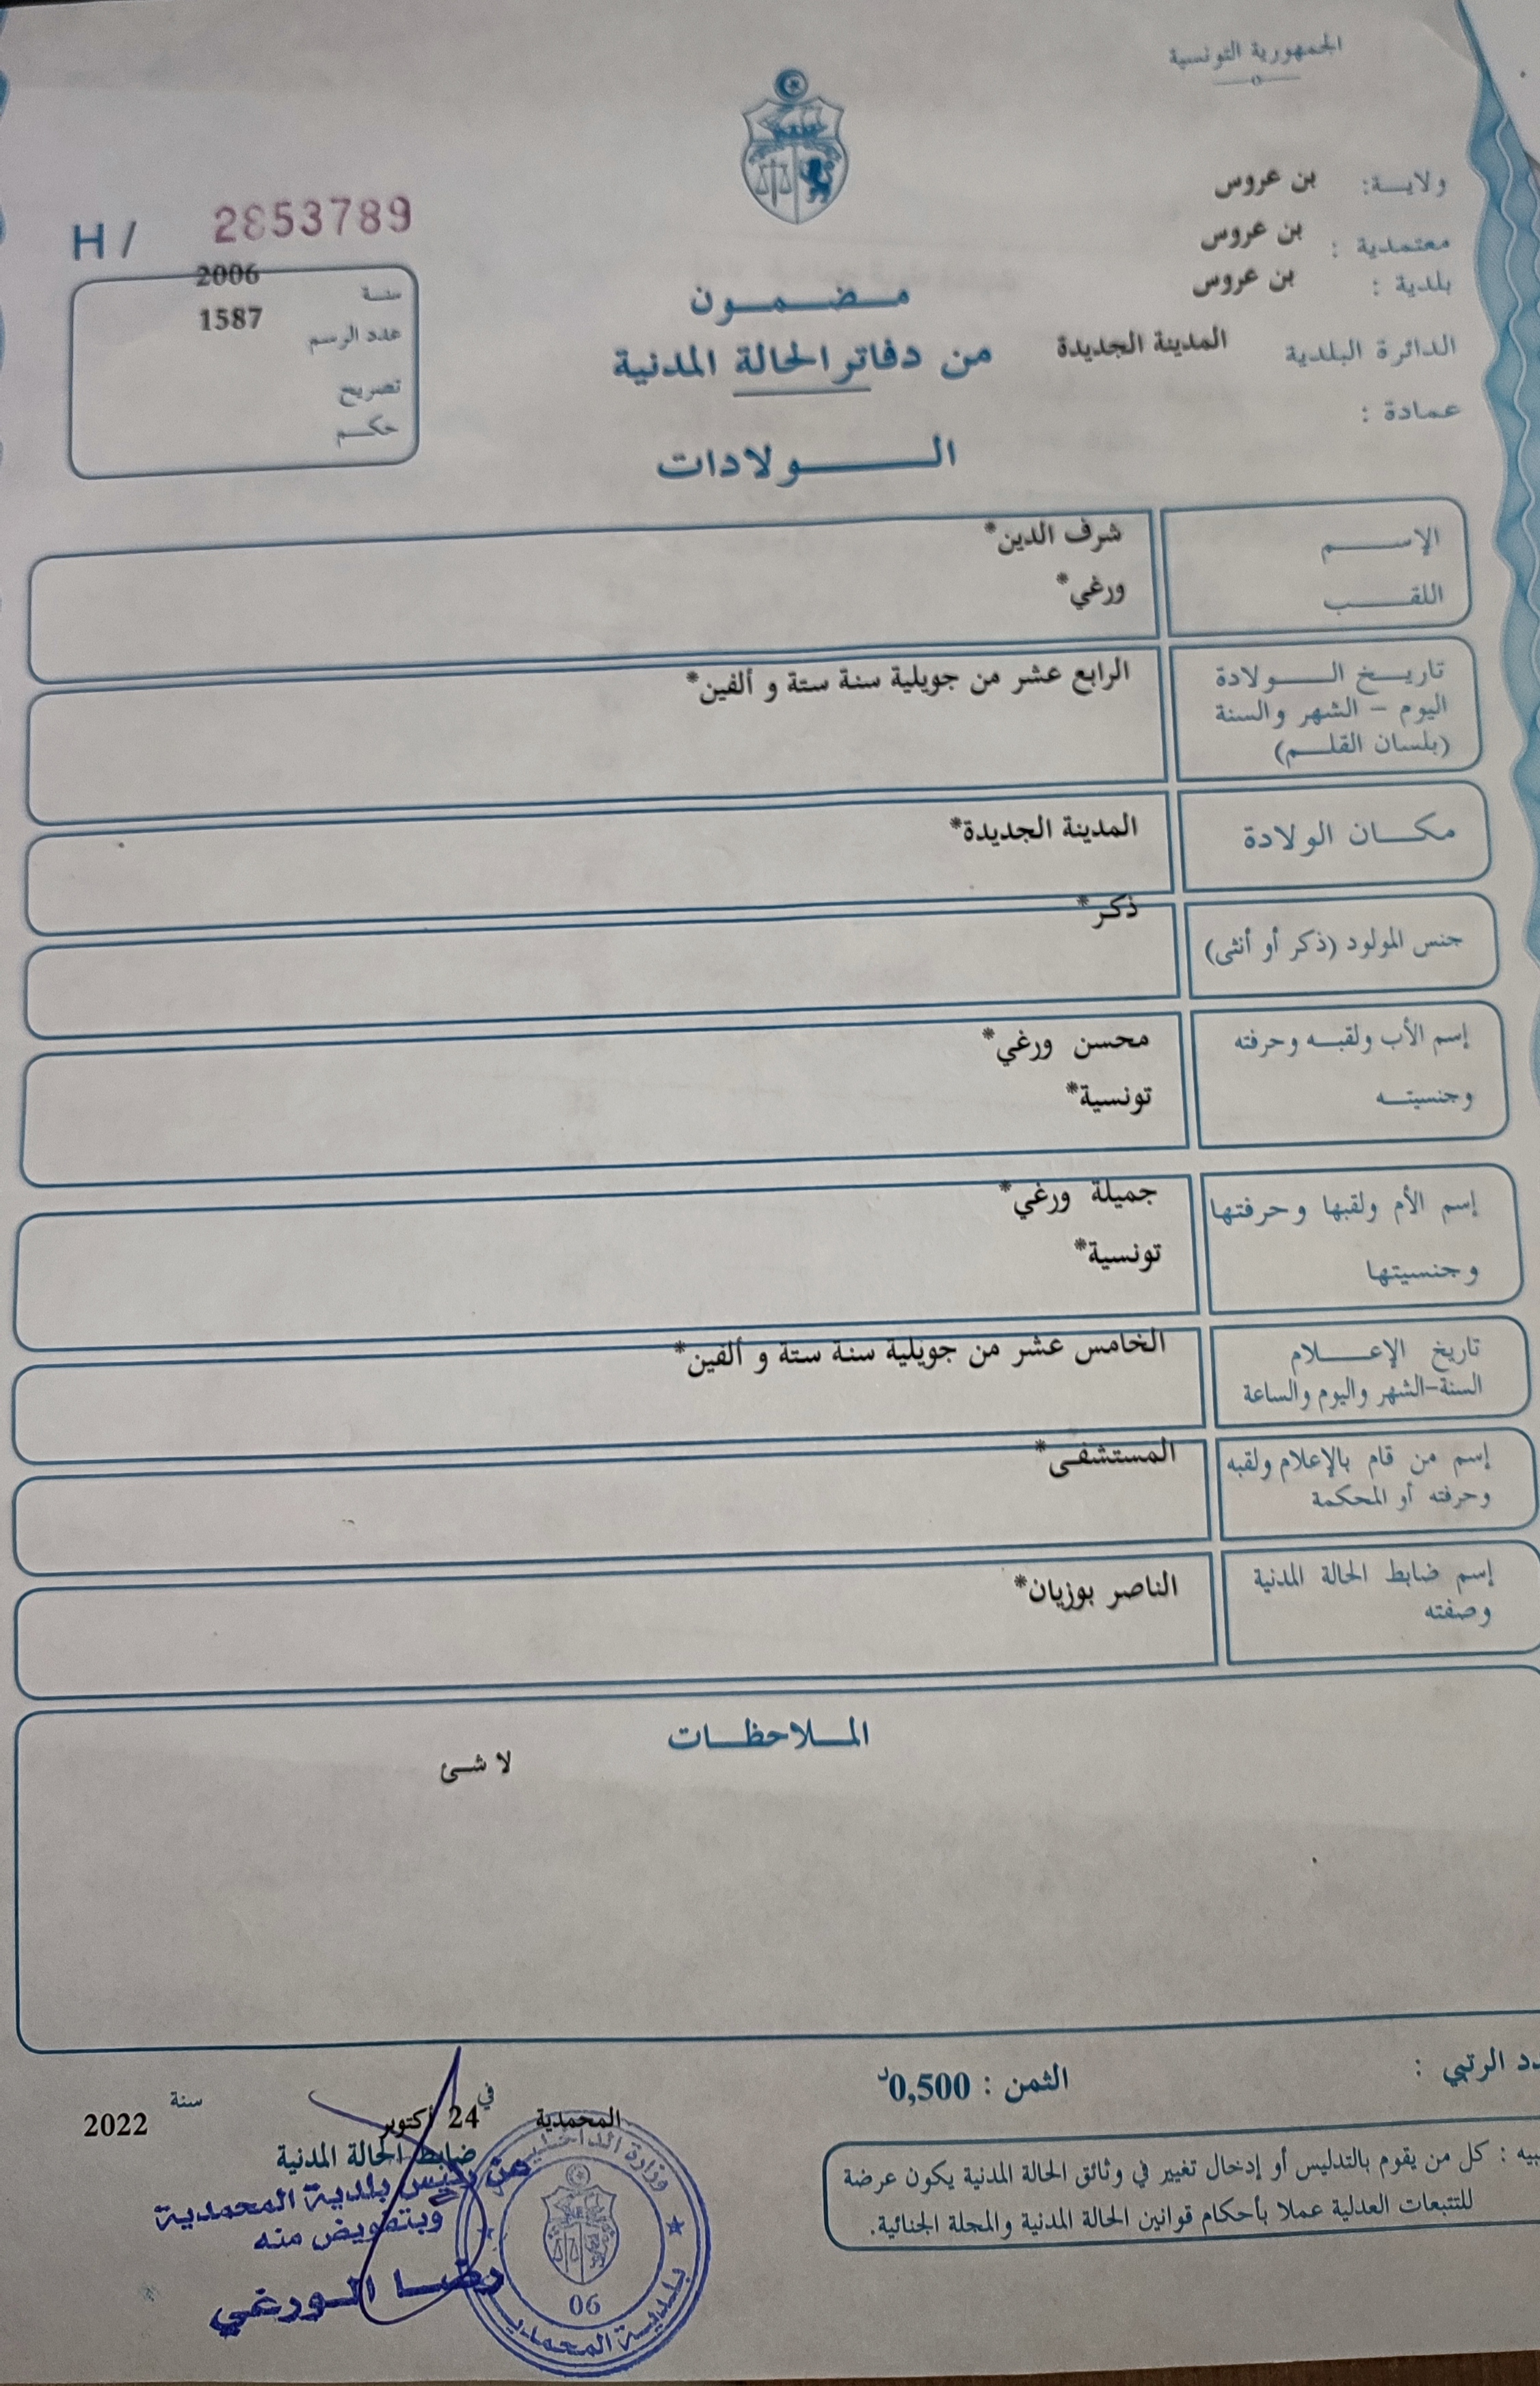 الجمهورية التونسية
ولاية: بن عروس
معتمدية : بن عروس
بلدية : بن عروس
الدائرة البلدية المدينة الجديدة
عمادة :
H / 2853789
سنة 2006
عدد الرسم 1587
تصريح
حكم
مضمون
من دفاتر الحالة المدنية
الولادات
الإسم شرف الدين*
اللقب ورغي*
تاريخ الولادة الرابع عشر من جويلية سنة ستة و ألفين*
اليوم - الشهر والسنة
(بلسان القلم)
مكان الولادة المدينة الجديدة*
جنس المولود (ذكر أو أنثى) ذكر*
إسم الأب ولقبه وحرفته محسن ورغي*
وجنسيته تونسية*
إسم الأم ولقبها وحرفتها جميلة ورغي*
وجنسيتها تونسية*
تاريخ الإعلام الخامس عشر من جويلية سنة ستة و ألفين*
السنة-الشهر واليوم والساعة
إسم من قام بالإعلام ولقبه المستشفى*
وحرفته أو المحكمة
إسم ضابط الحالة المدنية الناصر بوزيان*
وصفته
الملاحظات
لا شئ
دد الرتبي :
الثمن : 0,500د
بيه : كل من يقوم بالتدليس أو إدخال تغيير في وثائق الحالة المدنية يكون عرضة
للتتبعات العدلية عملا بأحكام قوانين الحالة المدنية والمجلة الجنائية.
المحمدية في 24 أكتوبر سنة 2022
ضابط الحالة المدنية
عن رئيس بلدية المحمدية
وبتفويض منه
رضا الورغي
وزارة الداخلية
06
بلدية المحمدية